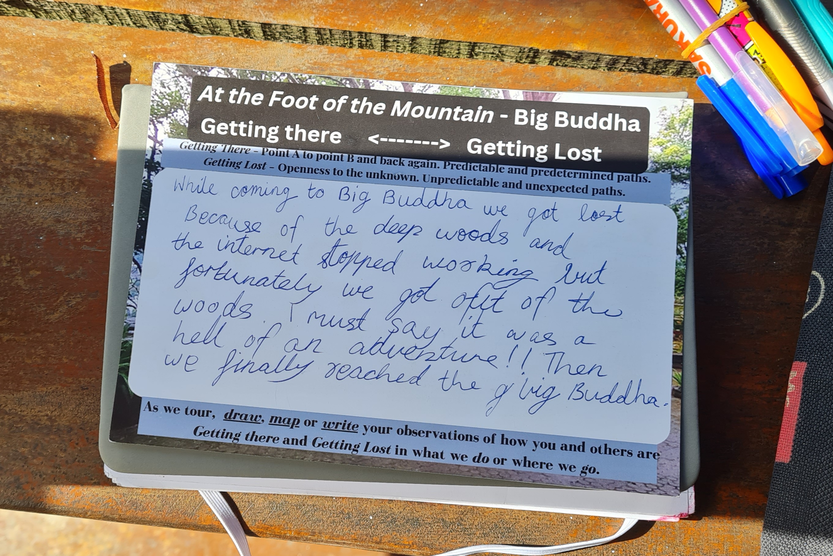 At the Foot of the Mountain - Big Buddha
Getting there <-------> Getting Lost
Getting There - Point A to point B and back again. Predictable and predetermined paths.
Getting Lost - Openness to the unknown. Unpredictable and unexpected paths.
While coming to Big Buddha we got lost
Because of the deep woods and
the internet stopped working but
fortunately we got out of the
woods. I must say it was a
hell of an adventure!! Then
we finally reached the g big Buddha.
As we tour, draw, map or write your observations of how you and others are
Getting there and Getting Lost in what we do or where we go.
SAKURA